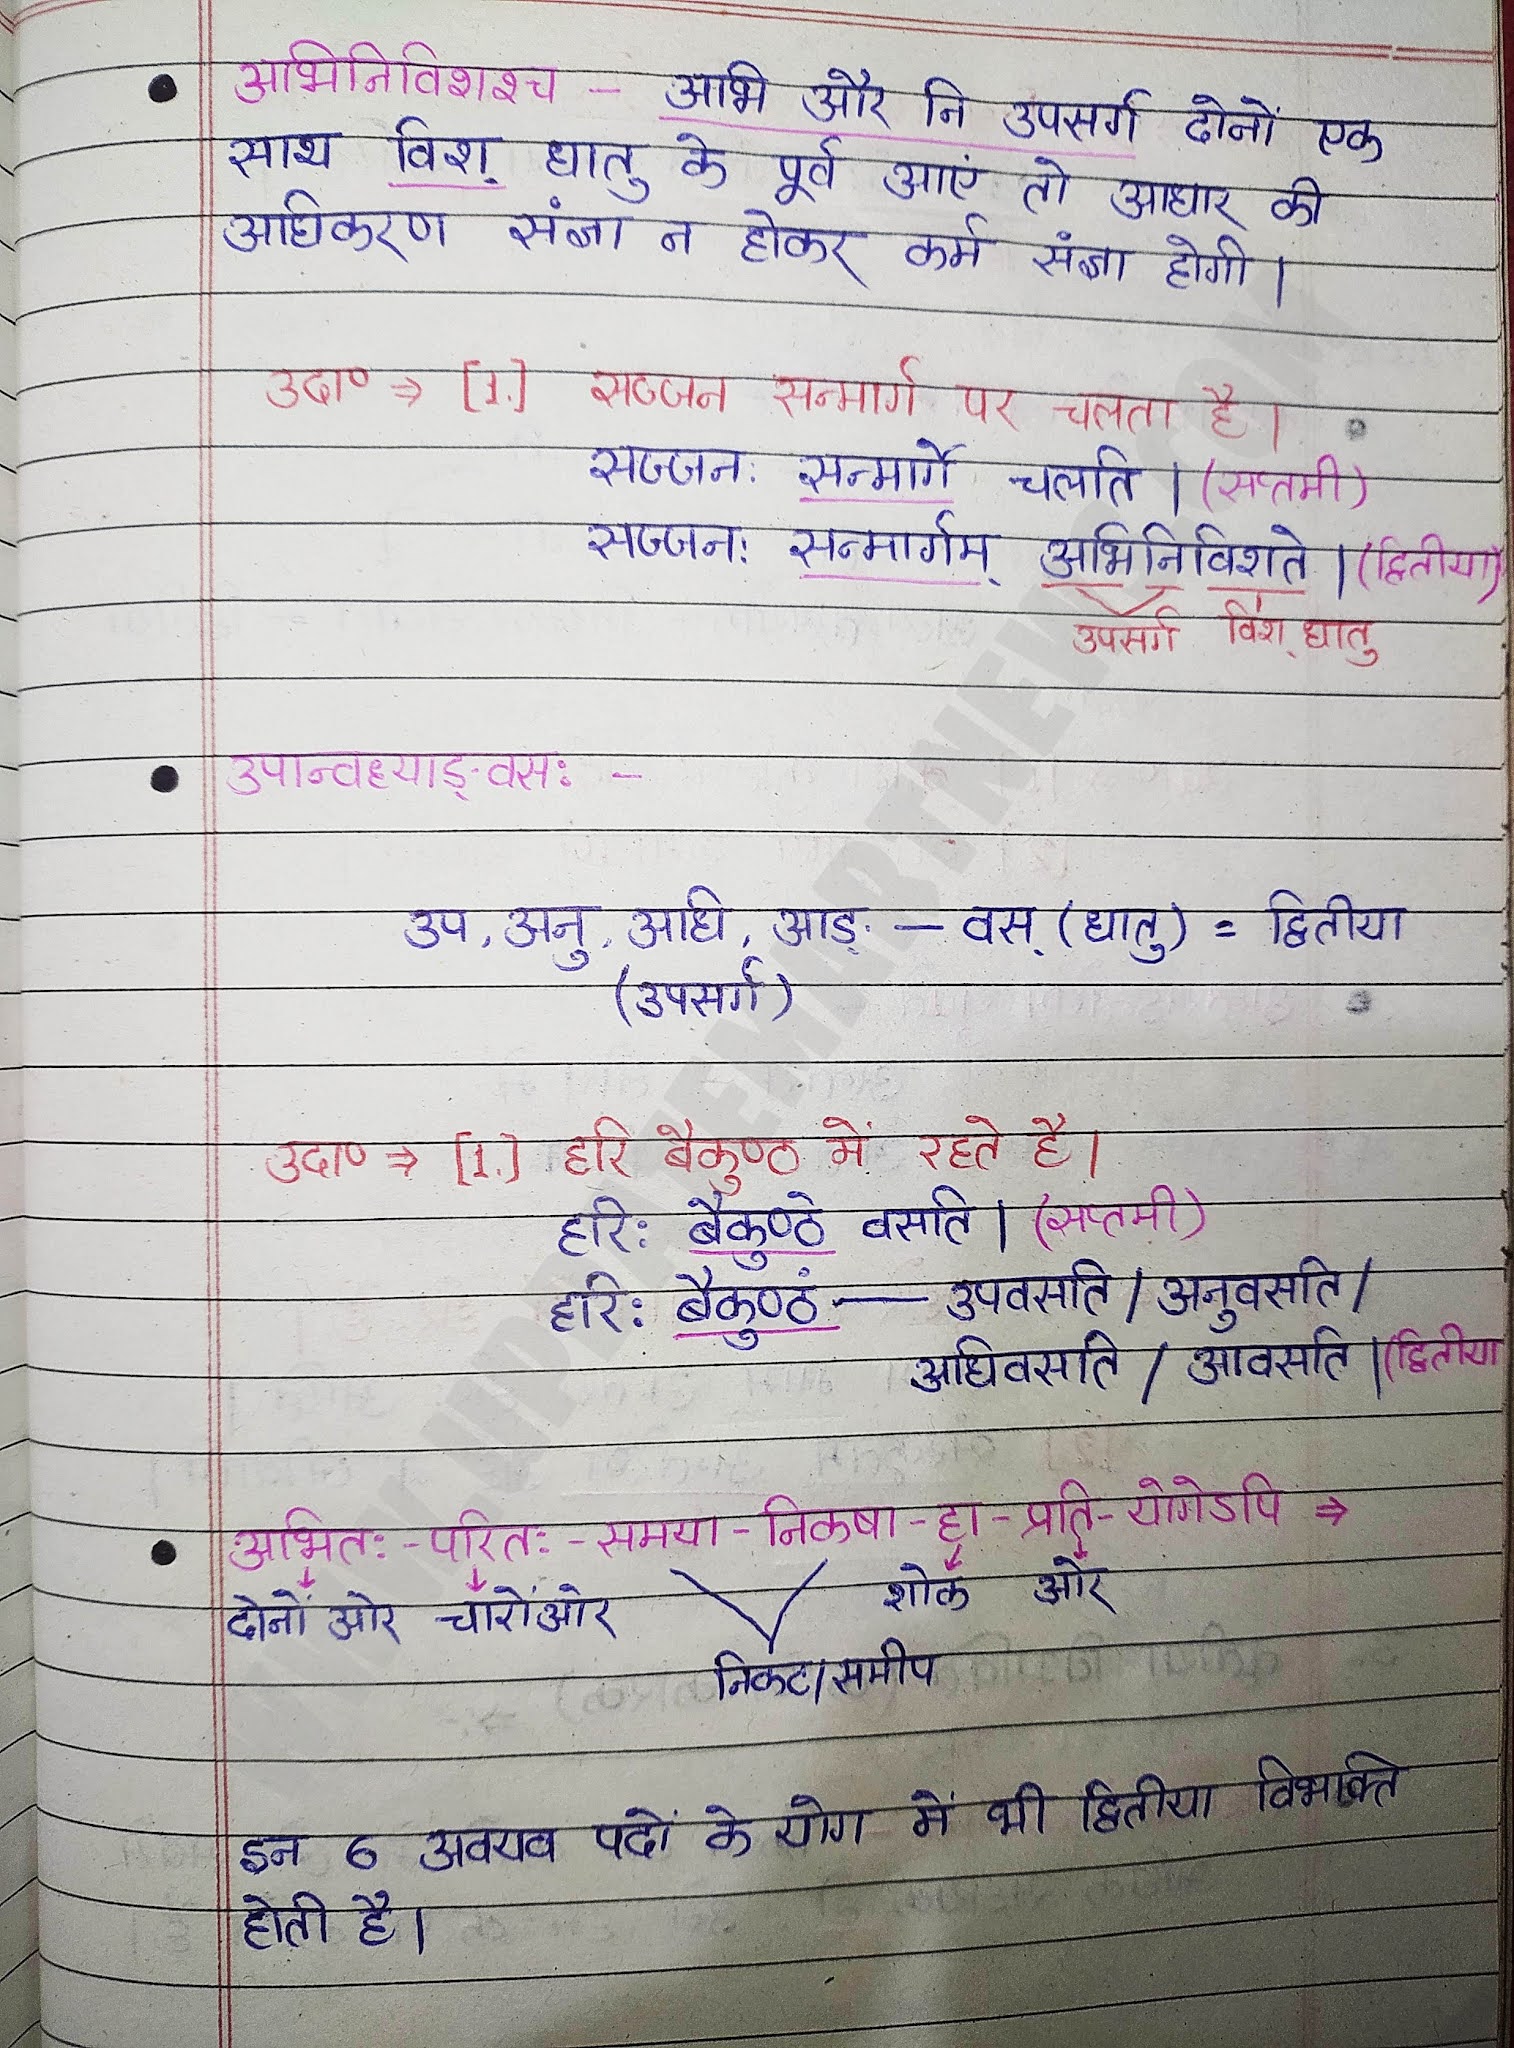 अभिनिविशश्च – अभि और नि उपसर्ग दोनों एक
साथ विश् धातु के पूर्व आएं तो आधार की
अधिकरण संज्ञा न होकर कर्म संज्ञा होगी।
उदा० ⇒ [1.] सज्जन सन्मार्ग पर चलता है।
सज्जन: सन्मार्गे चलति। (सप्तमी)
सज्जन: सन्मार्गम् अभिनिविशते। (द्वितीया)
उपसर्ग विश् धातु
उपान्वध्याड्.वस: –
उप, अनु, अधि, आड्. – वस् (धातु) = द्वितीया
(उपसर्ग)
उदा० ⇒ [1.] हरि बैकुण्ठ में रहते है।
हरि: बैकुण्ठे वसति। (सप्तमी)
हरि: बैकुण्ठं — उपवसति / अनुवसति /
अधिवसति / आवसति। (द्वितीया
अभित: - परित: - समया - निकषा - हा - प्रति - योगेऽपि ⇒
दोनों ओर चारों ओर शोक ओर
निकट/समीप
इन 6 अवयव पदों के योग में भी द्वितीया विभक्ति
होती है।